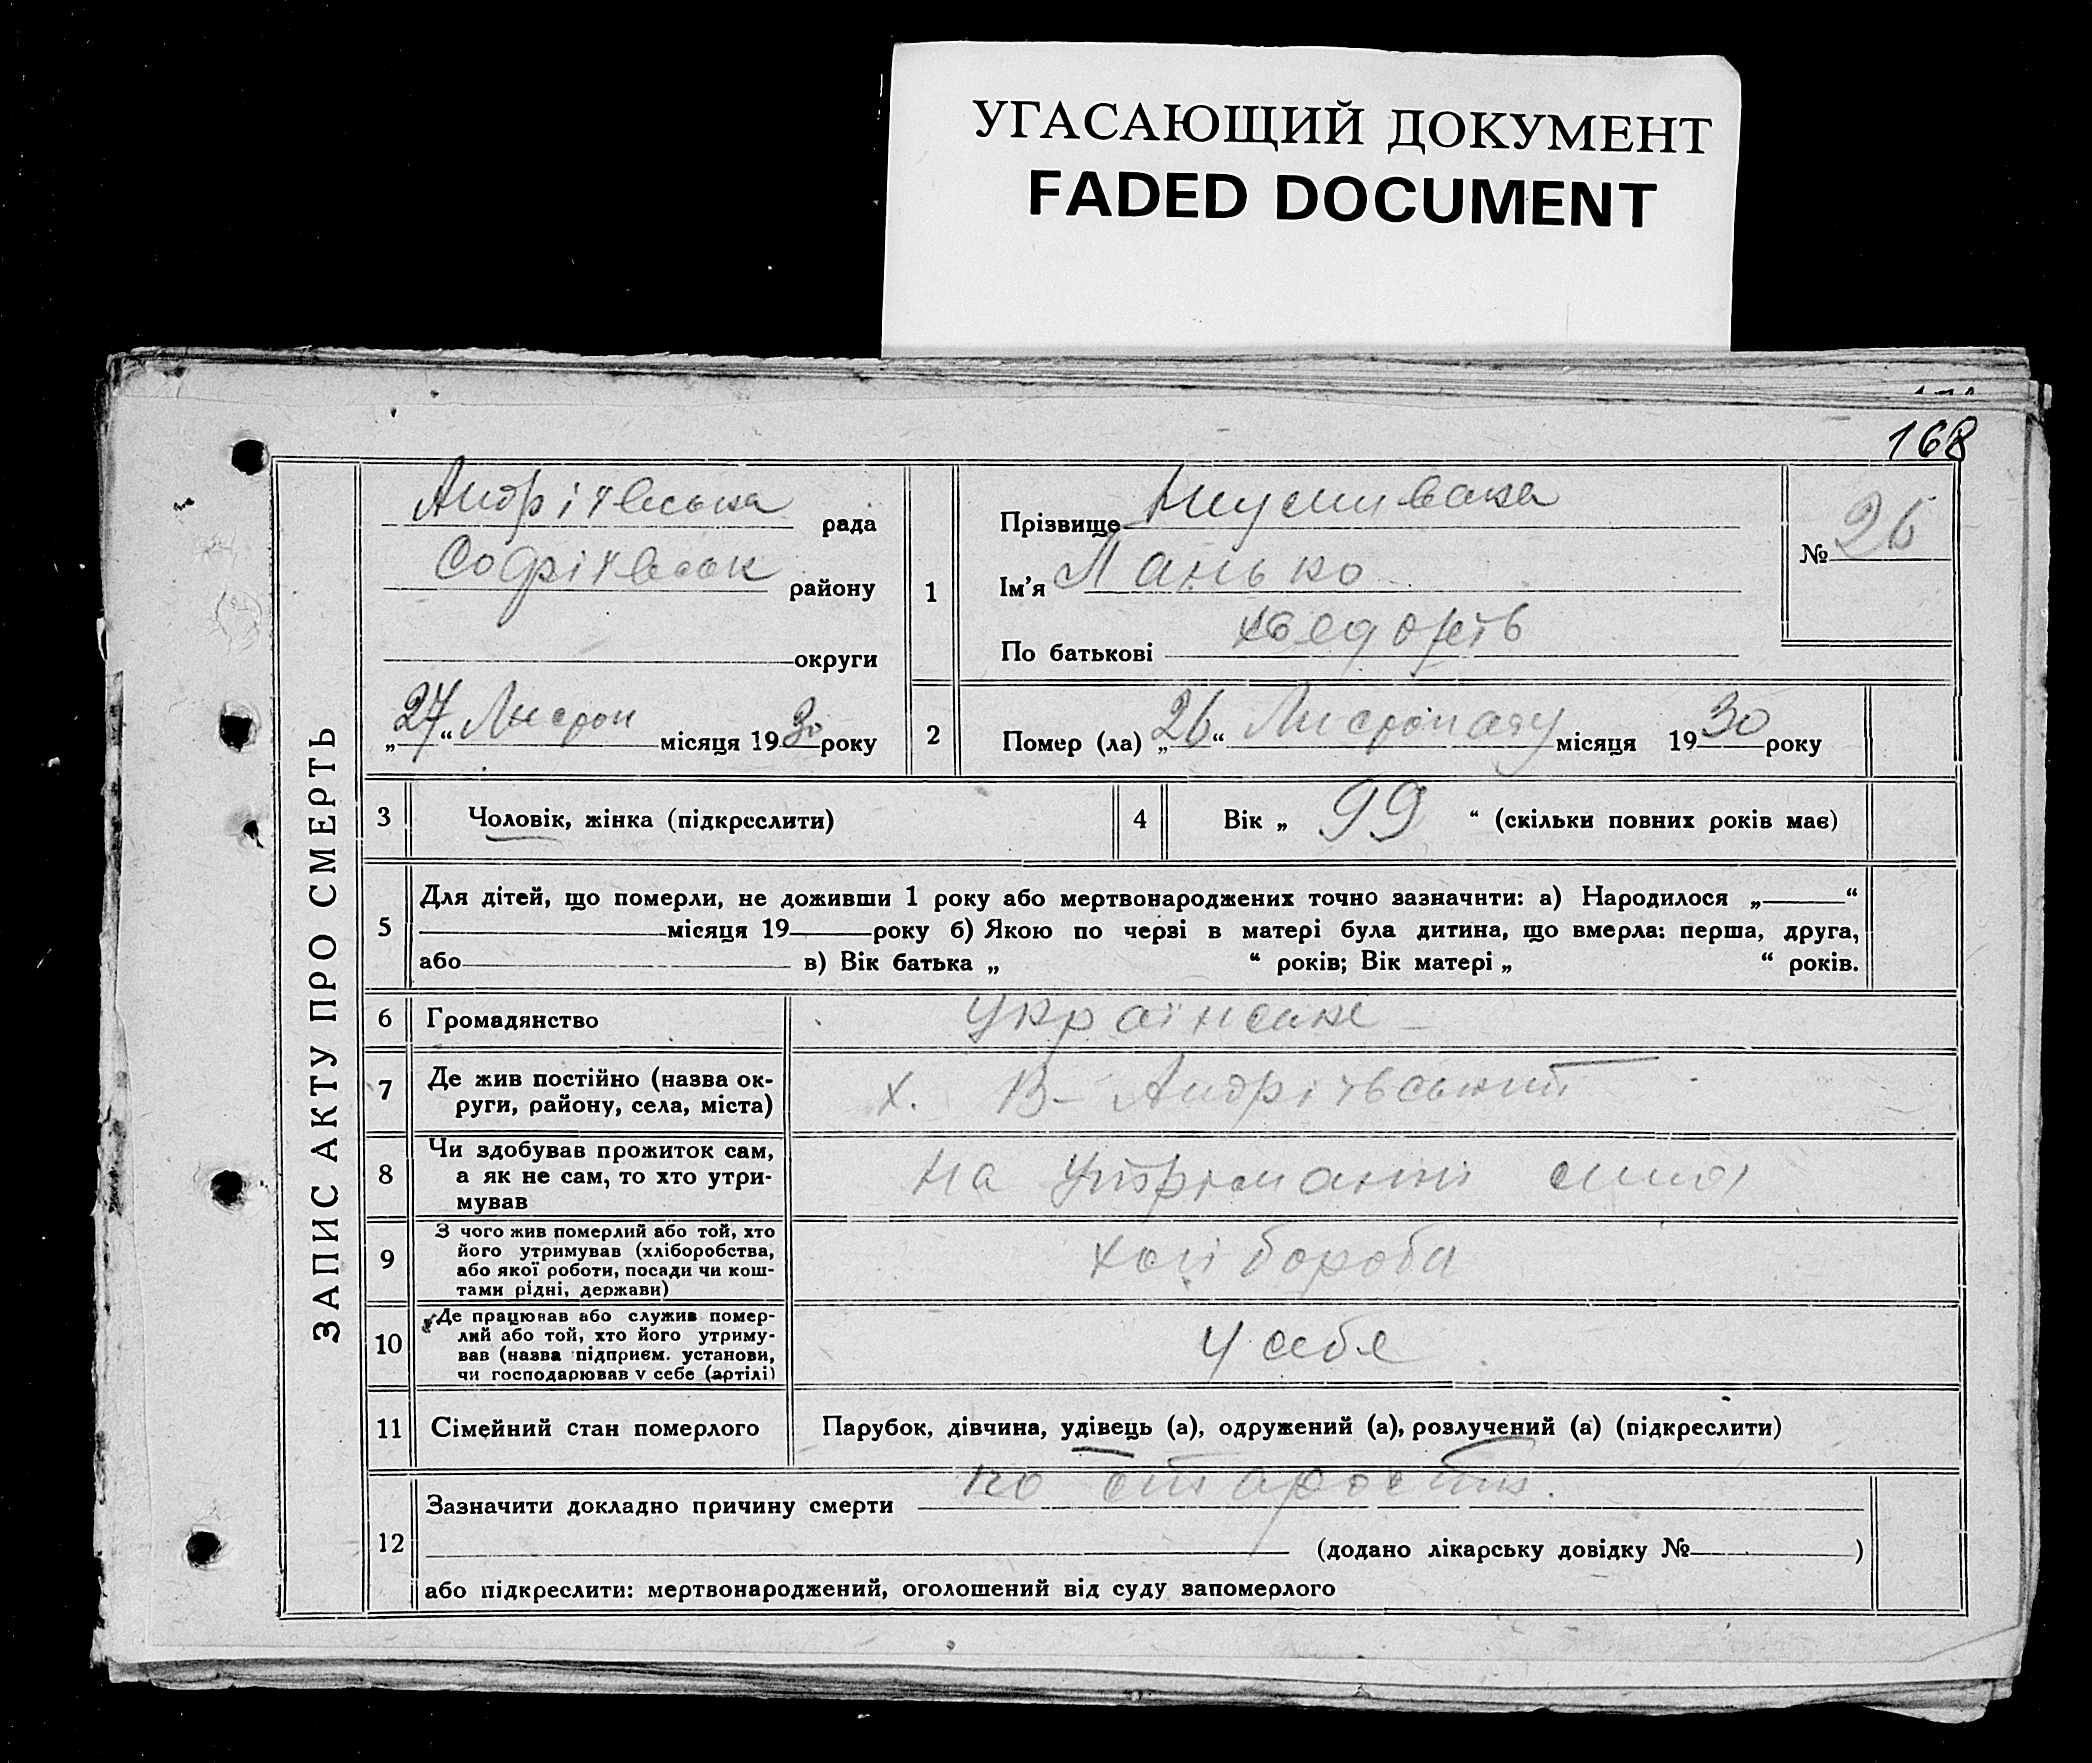 УГАСАЮЩИЙ ДОКУМЕНТ
FADED DOCUMENT
168
ЗАПИС АКТУ ПРО СМЕРТЬ
Андріївська рада
Софіївськ району
округи
„27“ Листоп місяця 1930 року
1
Прізвище
Ім'я Панько
По батькові
№ 26
2
Помер (ла) „26“ Листопаду місяця 1930 року
3
Чоловік, жінка (підкреслити)
4
Вік „ 99 “ (скільки повних років має)
5
Для дітей, що померли, не доживши 1 року або мертвонароджених точно зазначити: а) Народилося „ “
місяця 19 року б) Якою по черзі в матері була дитина, що вмерла: перша, друга,
або в) Вік батька „ “ років; Вік матері „ “ років.
6
Громадянство
Українське
7
Де жив постійно (назва ок-
руги, району, села, міста)
х. В-Андріївський
8
Чи здобував прожиток сам,
а як не сам, то хто утри-
мував
на утриманні сина
9
З чого жив померлий або той, хто
його утримував (хліборобства,
або якої роботи, посади чи кош-
тами рідні, держави)
10
Де працював або служив помер-
лий або той, хто його утриму-
вав (назва підприєм. установи,
чи господарював у себе (артілі)
У себе
11
Сімейний стан померлого
Парубок, дівчина, удівець (а), одружений (а), розлучений (а) (підкреслити)
12
Зазначити докладно причину смерти по старости.
(додано лікарську довідку № )
або підкреслити: мертвонароджений, оголошений від суду запомерлого